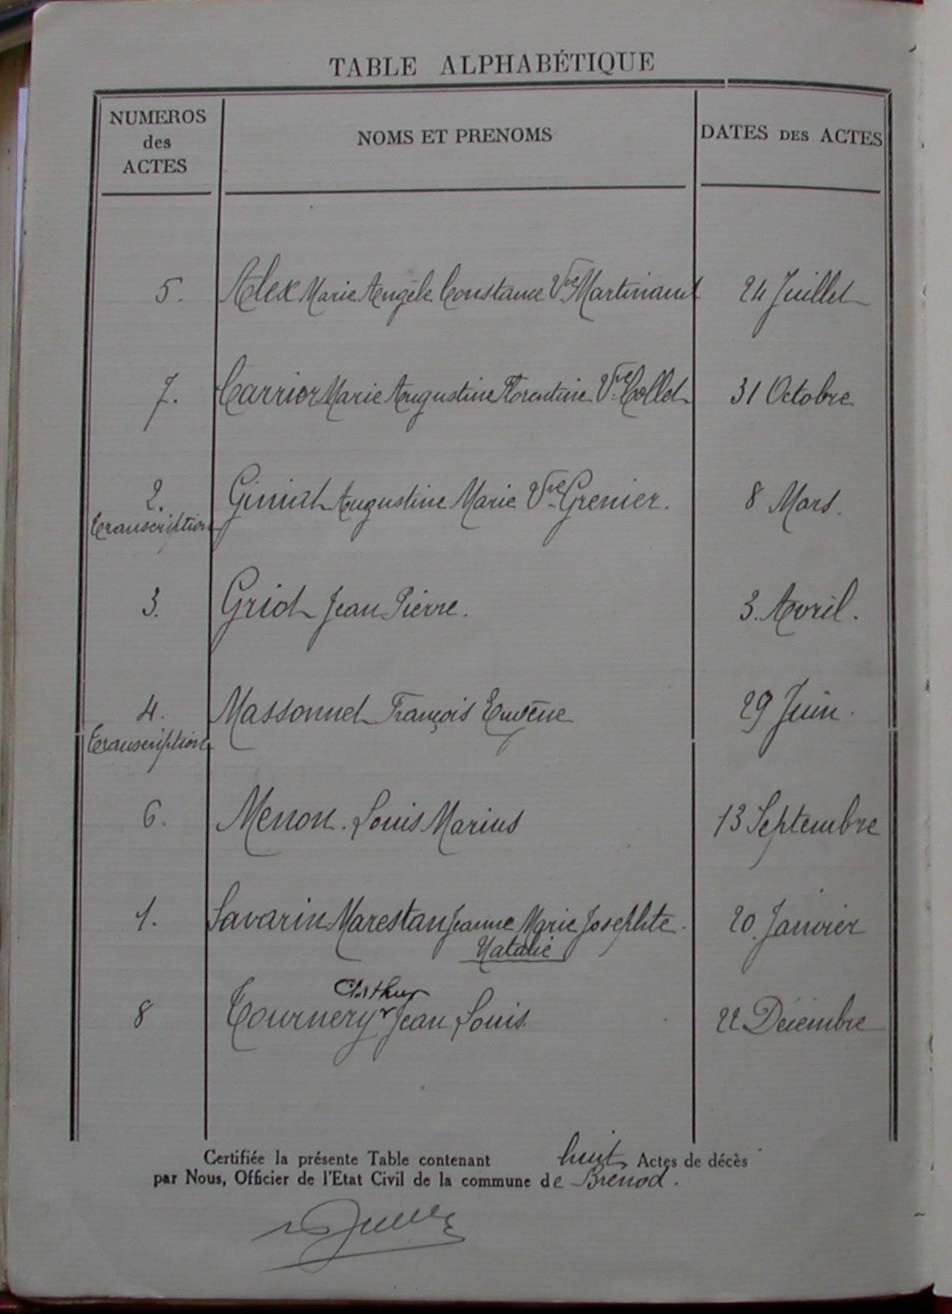 TABLE ALPHABÉTIQUE
NUMEROS des ACTES
NOMS ET PRENOMS
DATES DES ACTES
5. Alex Marie Angèle Constance Vve Martinand 24 Juillet
7. Carrier Marie Augustine Florentine Vve Collet 31 Octobre
2. Giniat Augustine Marie Vve Grenier. 8 Mars.
transcription
3. Griot Jean Pierre. 3. Avril.
4. Massonnet François Eugène 29 Juin.
transcription
6. Menon. Louis Marius 13 Septembre
1. Savarin Marestan Jeanne Marie Josephte. 20 Janvier
Natalie
Arthur
8 Tournery Jean Louis 22 Décembre
Certifiée la présente Table contenant huit Actes de décès
par Nous, Officier de l'Etat Civil de la commune de Brénod.